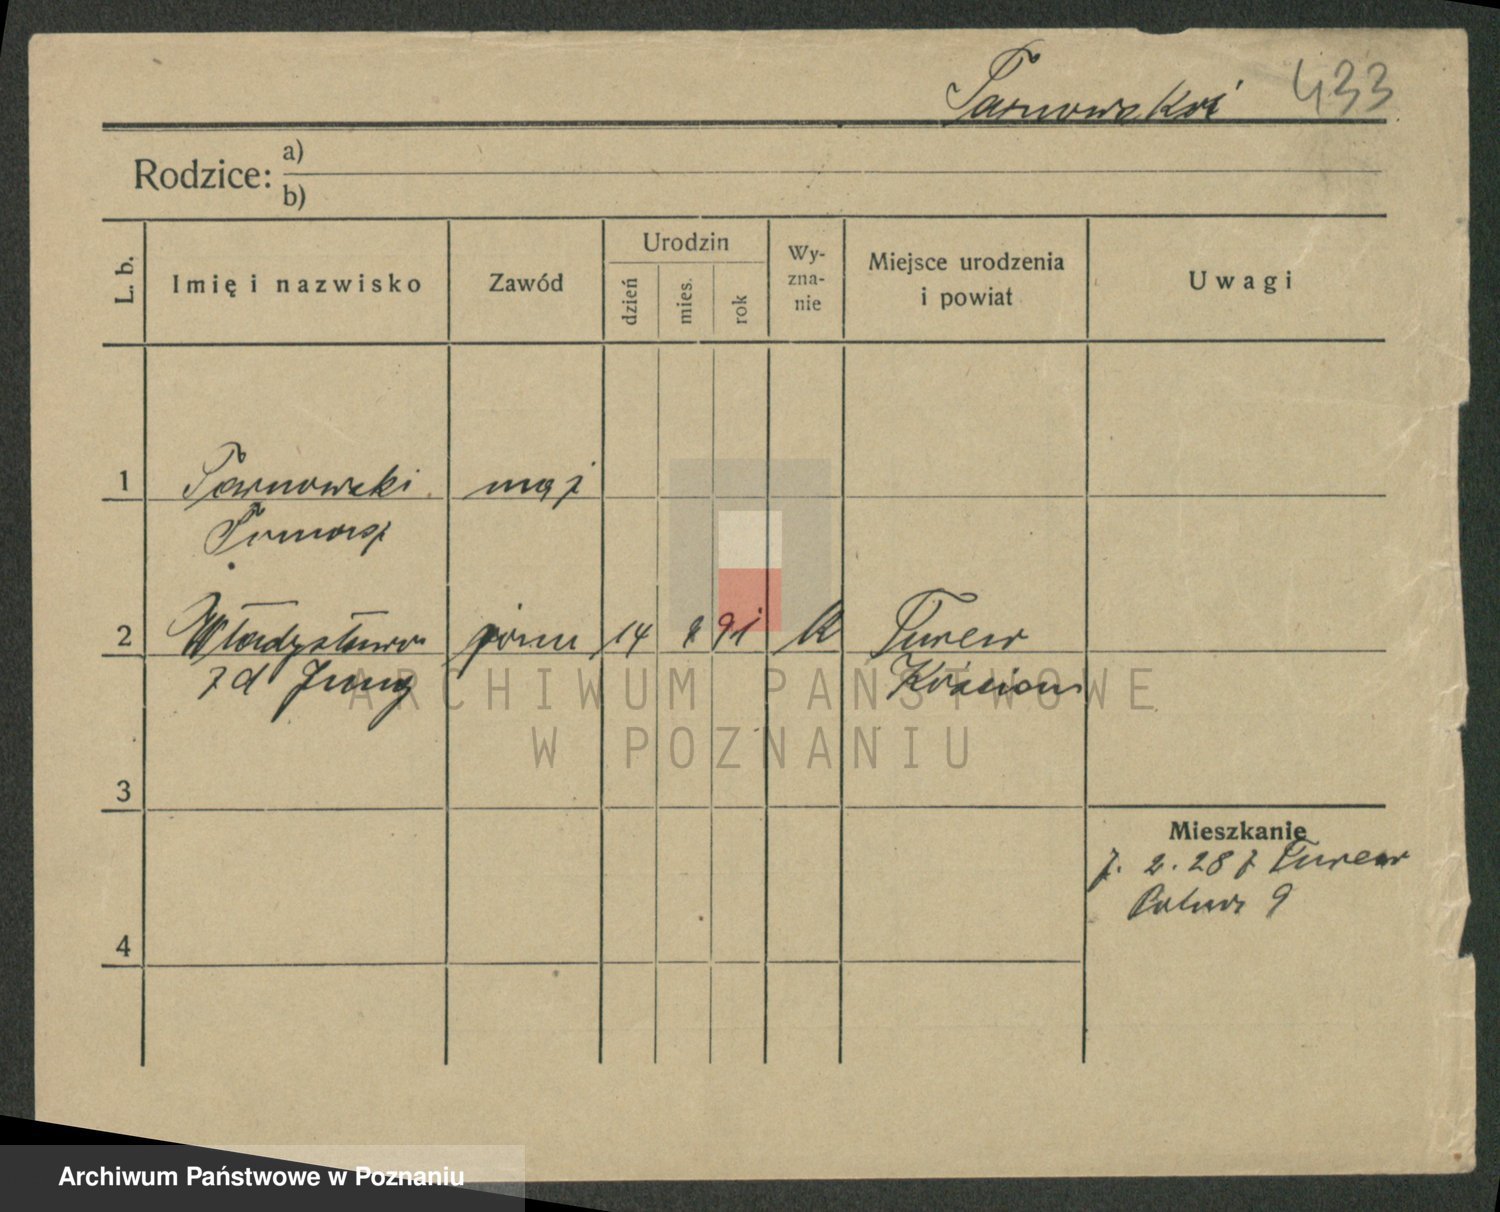 Tarnowski 433
Rodzice: a)
b)
L. b.
Imię i nazwisko
Zawód
Urodzin
dzień
mies.
rok
Wy-
zna-
nie
Miejsce urodzenia
i powiat
Uwagi
1 Tarnowski mąż
Tomasz
2 Władysława 14 91 k Turew
z d Jung Kościan
3
4
Mieszkanie
7. 2. 28 z Turew
9
ARCHIWUM PAŃSTWOWE
W POZNANIU
Archiwum Państwowe w Poznaniu